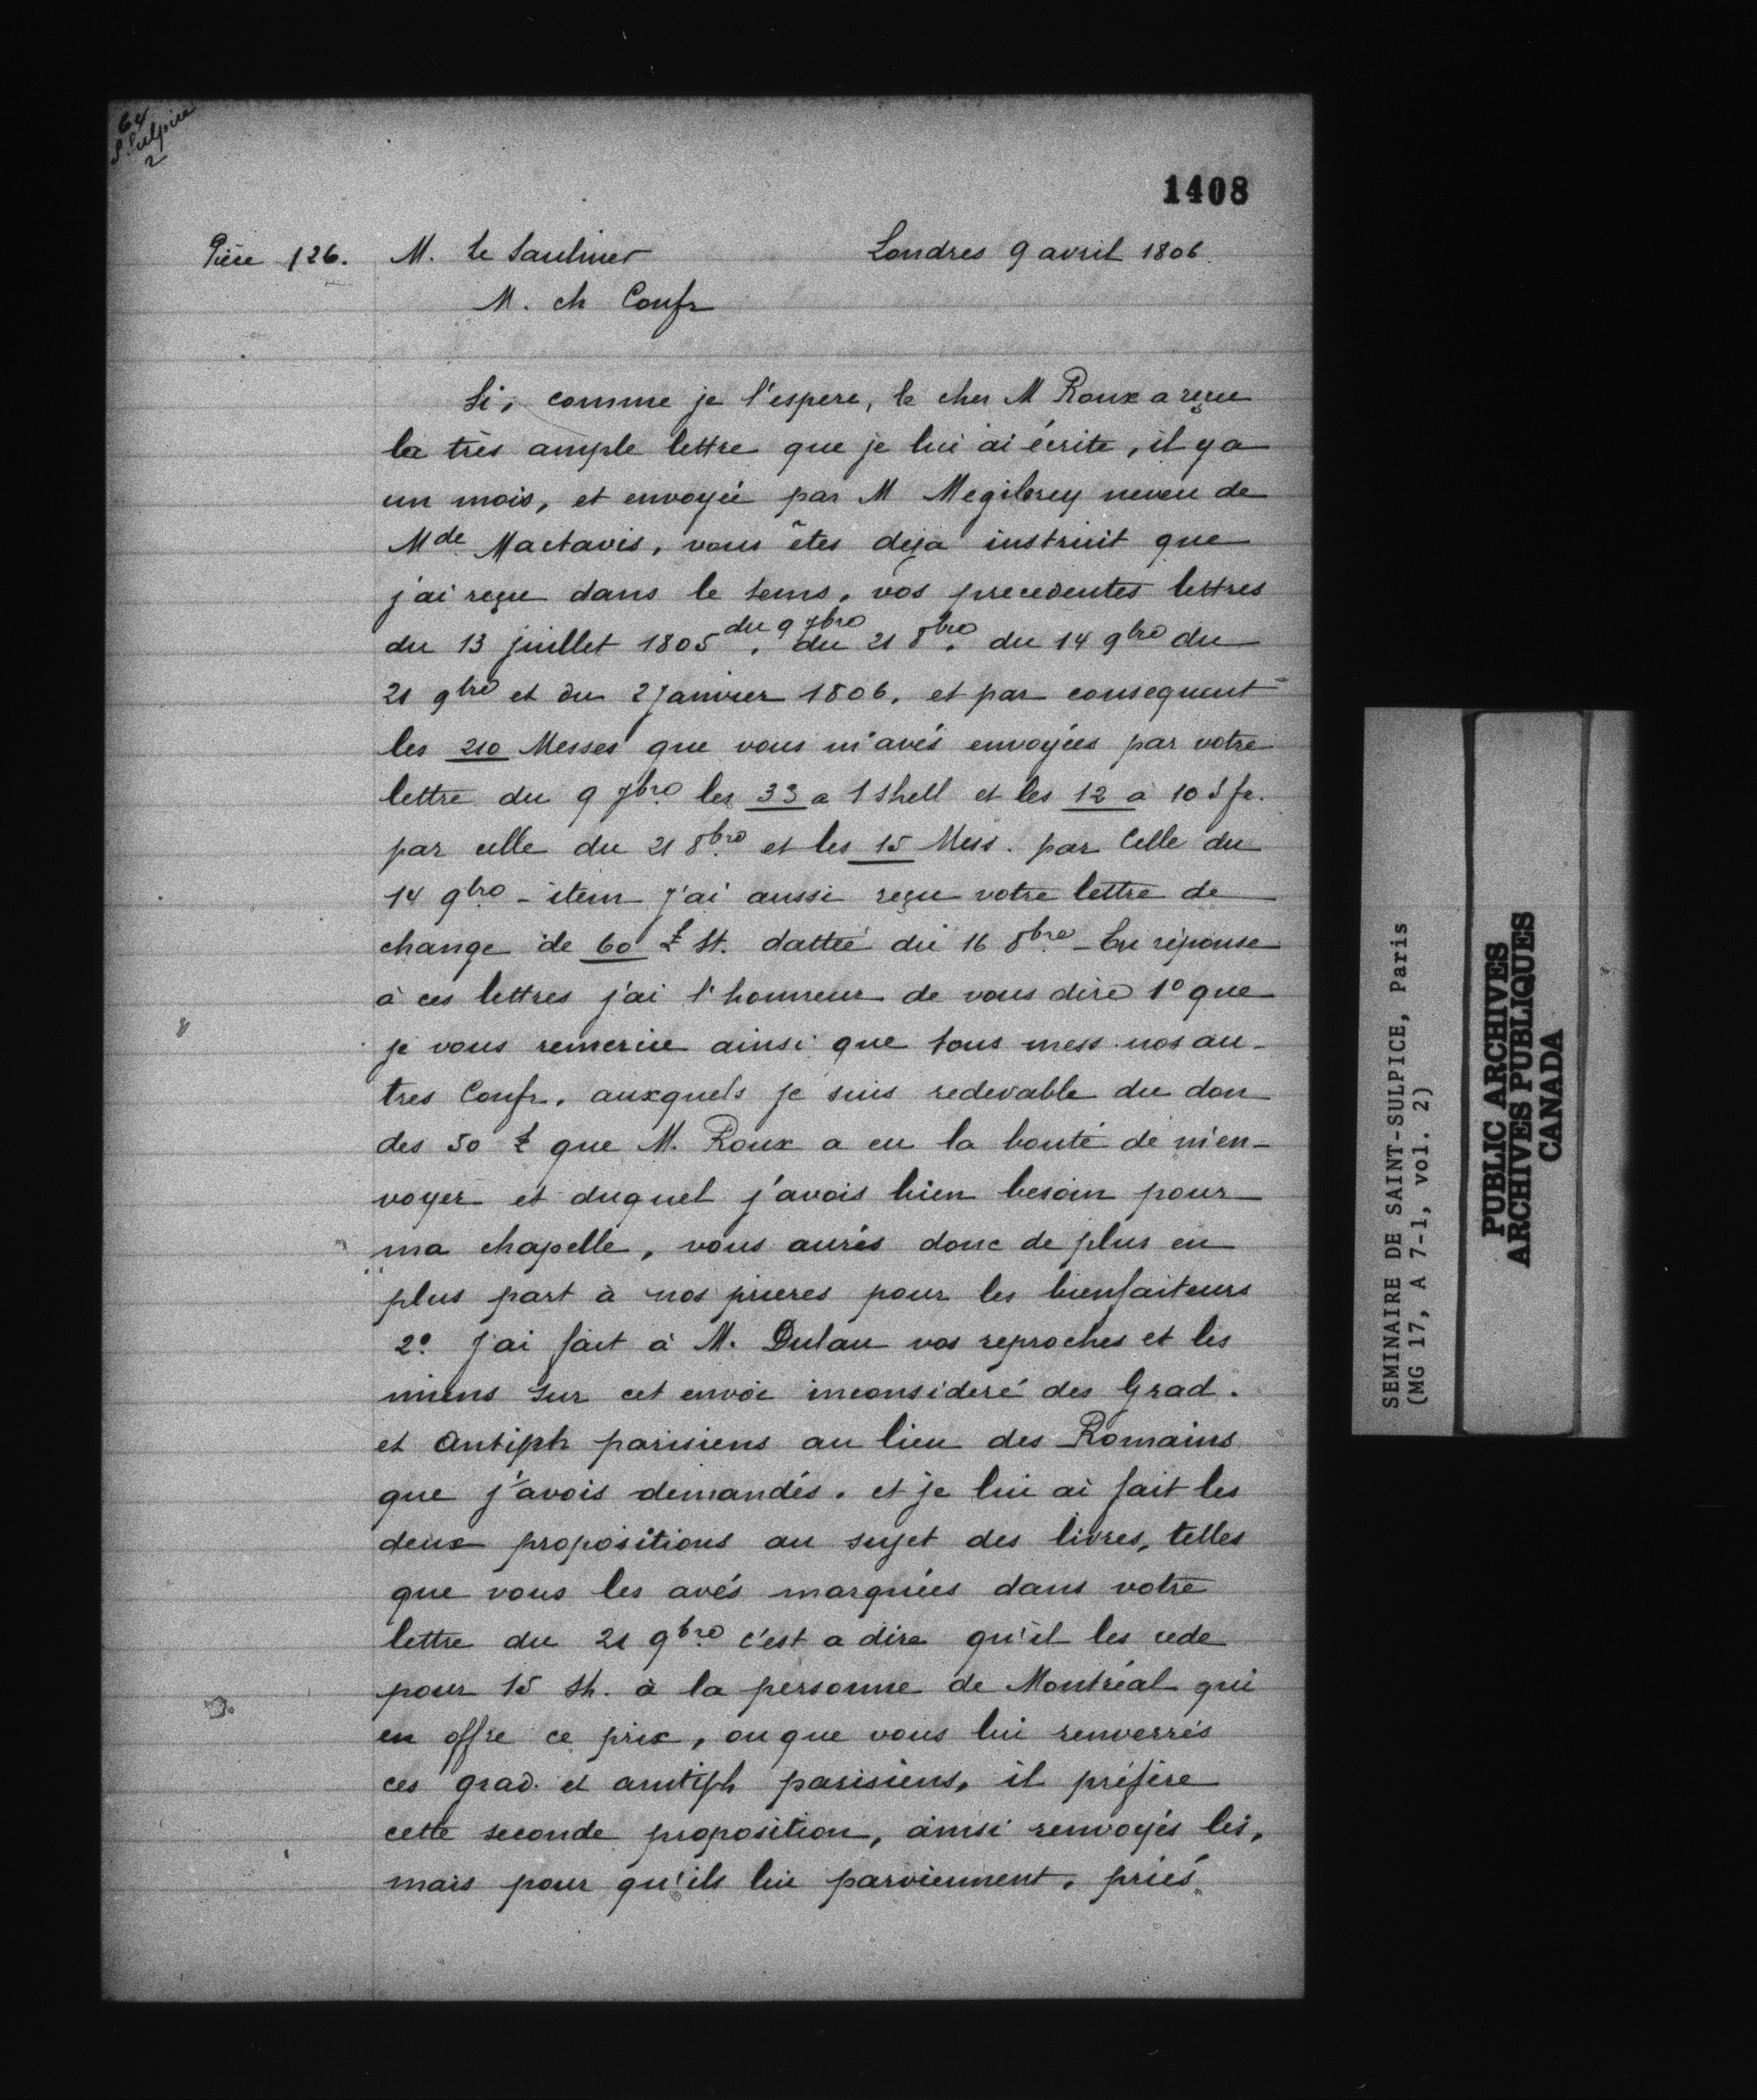 64
S. Sulpice
2
1408
Pièce 126. M. Le Saulnier Londres 9 avril 1806.
M. ch Confr
Si, comme je l'espere, le cher M Roux a reçue
la très ample lettre que je lui ai écrite, il y a
un mois, et envoyée par M Megilvrey neveu de
Mde Mactavis, vous êtes deja instruit que
j'ai reçue dans le tems, vos precedentes lettres
du 13 juillet 1805, du 9 7bre du 21 8bre, du 14 9bre du
21 9bre et du 2 Janvier 1806, et par consequent
les 210 Messes que vous m'avés envoyées par votre
lettre du 9 7bre les 33 a 1 shell et les 12 a 10 s fr.
par celle du 21 8bre et les 15 Mess. par Celle du
14 9bre - item j'ai aussi reçu votre lettre de
change de 60 £ St. dattée du 16 8bre - En réponse
à ces lettres j'ai l'honneur de vous dire 1o que
je vous remercie ainsi que tous mess. nos au-
tres Confr. auxquels je suis redevable du don
des 50 £ que M. Roux a eu la bonté de m'en-
voyer et duquel j'avois bien besoin pour
ma chapelle, vous aurés donc de plus en
plus part à nos prieres pour les bienfaiteurs
2o J'ai fait à M. Dulau vos reproches et les
miens sur cet envoi inconsideré des Grad.
et Antiph parisiens au lieu des Romains
que j'avois demandés. et je lui ai fait les
deux propositions au sujet des livres, telles
que vous les avés marquées dans votre
lettre du 21 9bre c'est a dire qu'il les cede
pour 15 sh. à la personne de Montréal qui
en offre ce prix, ou que vous lui renverrés
ces grad. et antiph parisiens, il préfère
cette seconde proposition, ainsi renvoyés les,
mais pour qu'ils lui parviennent, priés
SEMINAIRE DE SAINT-SULPICE, Paris
(MG 17, A 7-1, vol. 2)
PUBLIC ARCHIVES
ARCHIVES PUBLIQUES
CANADA